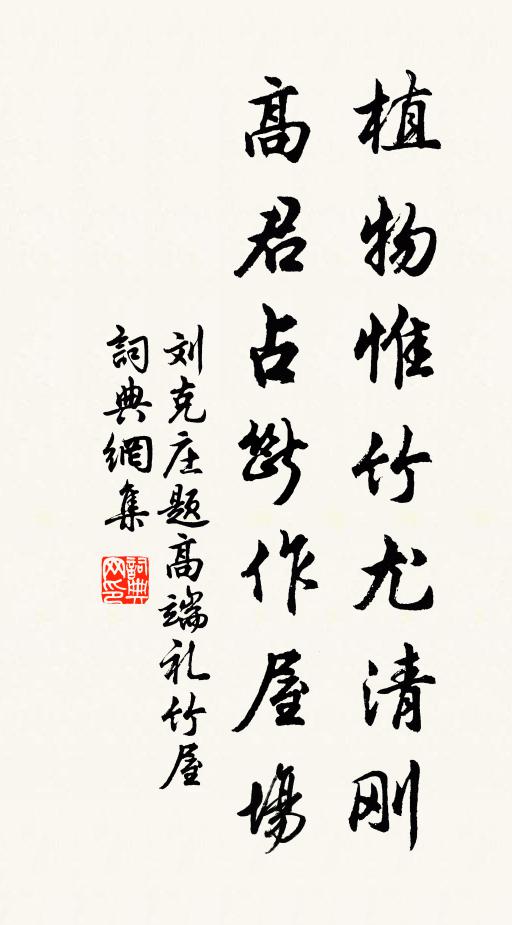 植物惟竹尤清刚
高君占断作屋场
刘克庄题高端礼竹屋
詞典網集
詞典网印